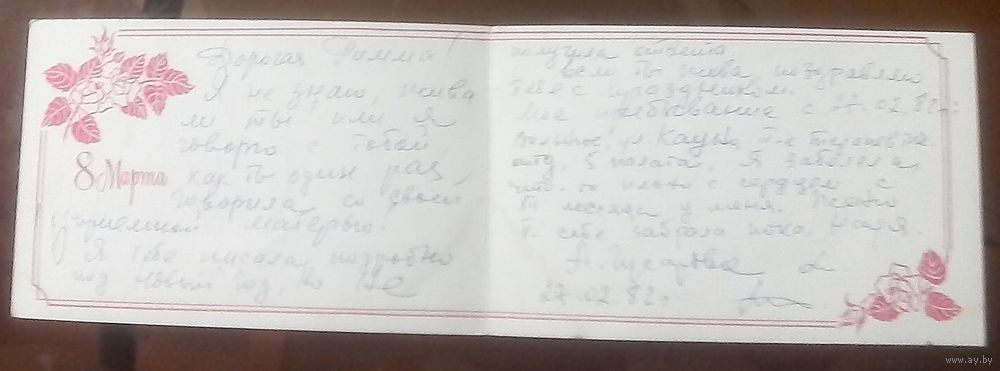 Дорогая Римма!
Я не знаю, жива
ли ты или я
говорю с тобой,
как ты один раз
говорила со своей
умершей матерью.
Я тебе писала подробно
под Новый год, но не
8 Марта
получила ответа.
Если ты жива, поздравляю
тебя с праздником.
Моё пребывание с 27.02.82г.:
ул. Кацы
5 палата, Я заболела,
что-то плохо с сердцем с
месяца у меня.
к себе забрала пока
27.02.82г.
www.ay.by